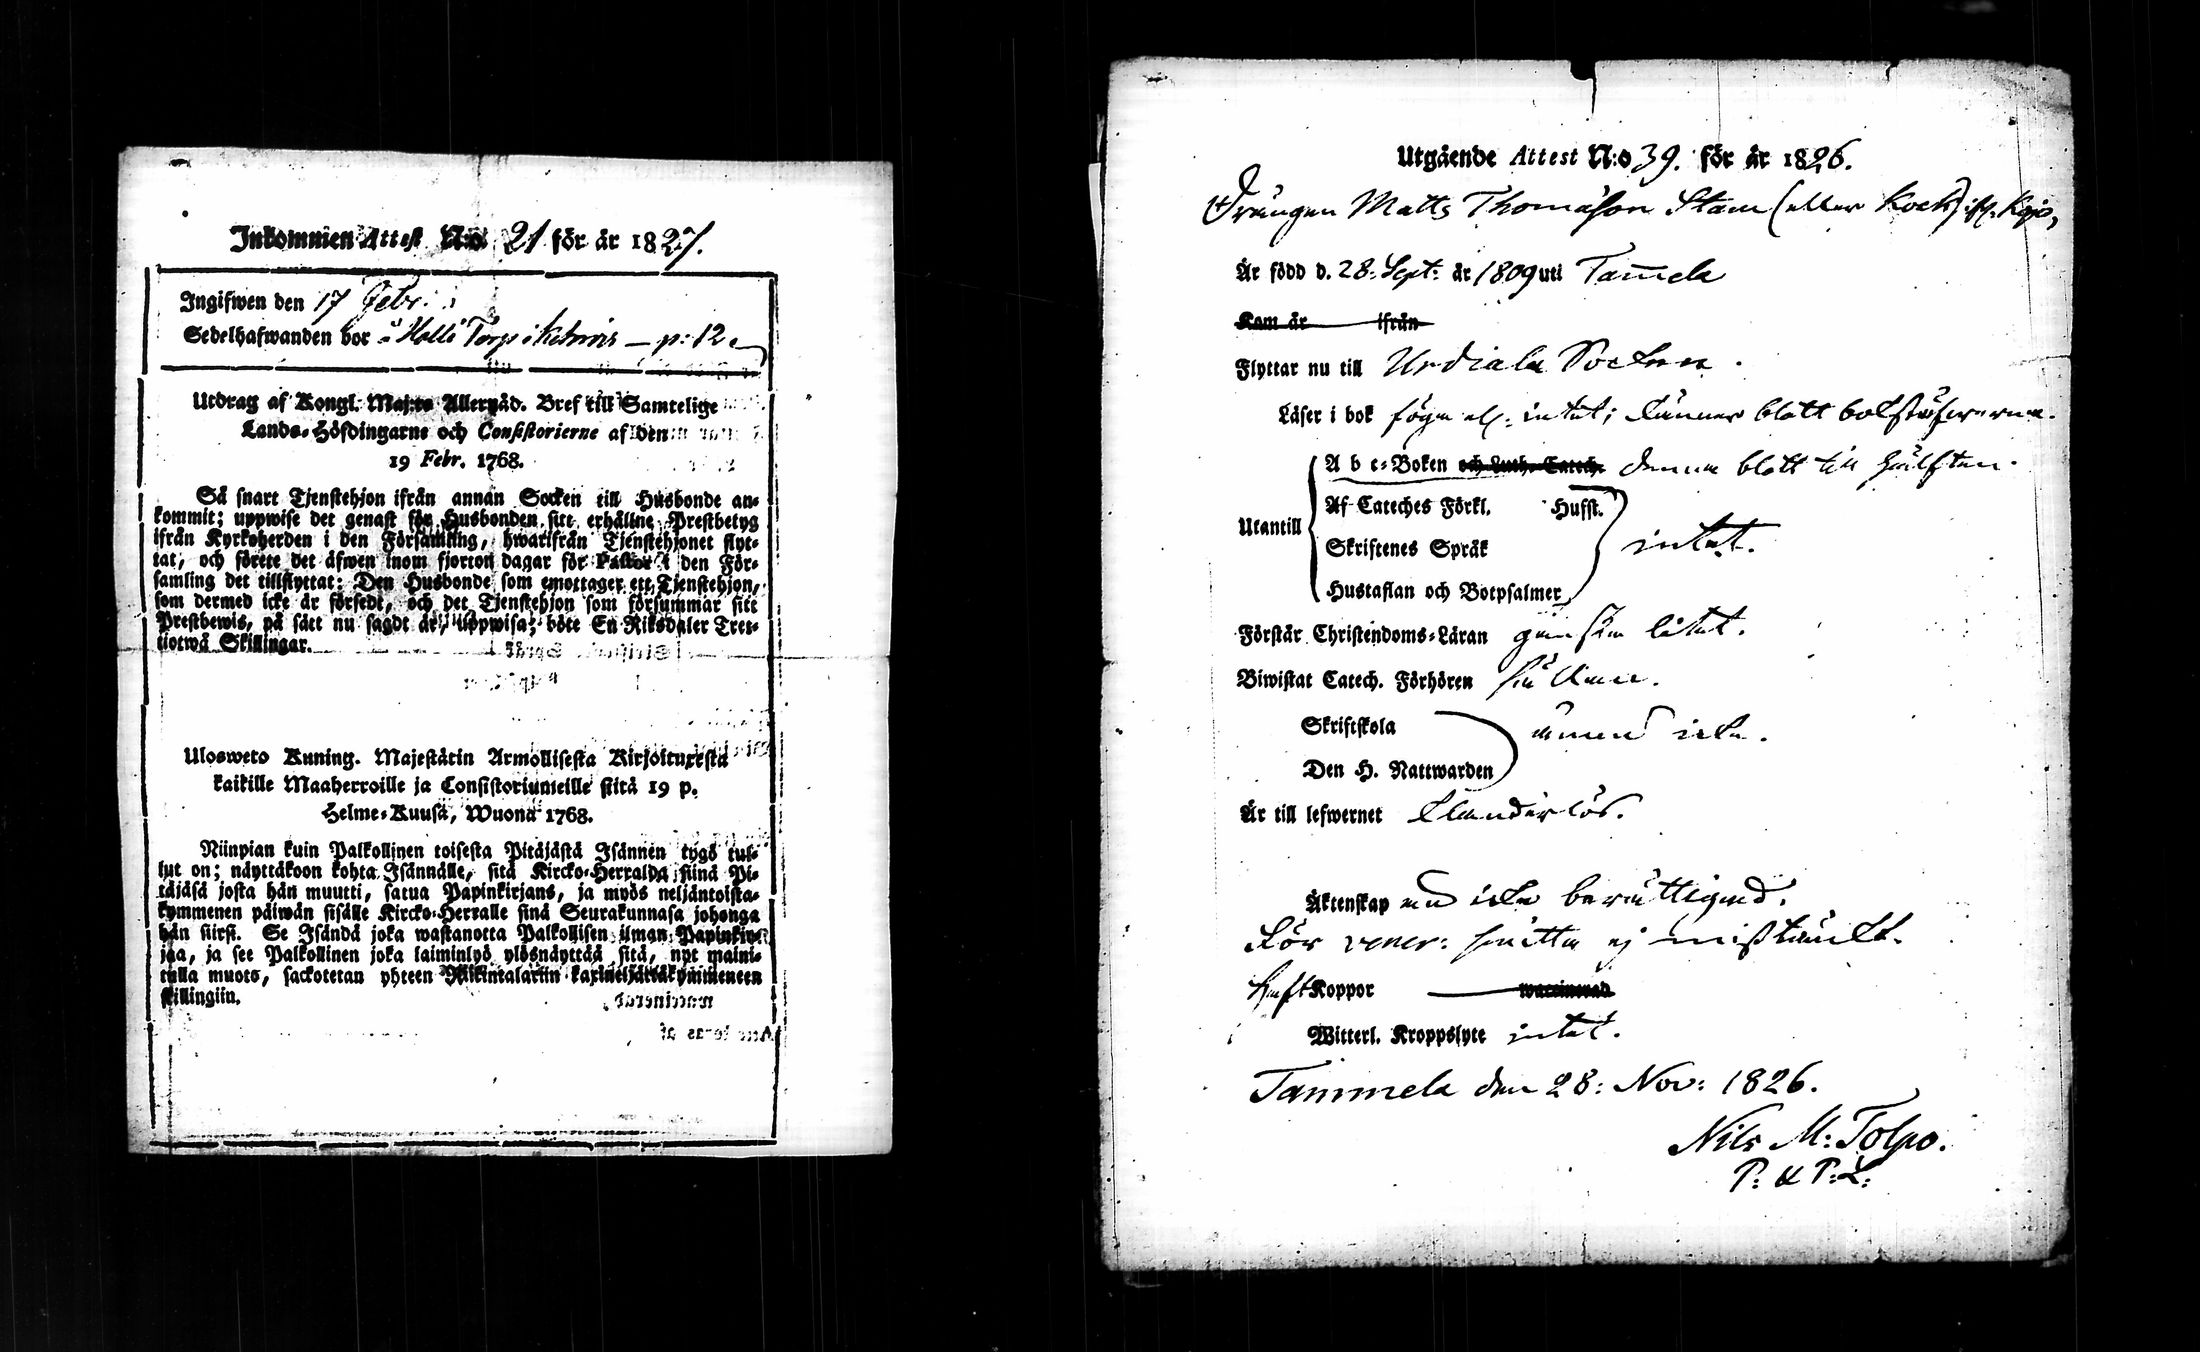 Inkommen Attest N:o 21 för år 1827.
Ingifwen den 17 Febr:
Sedelhafwanden bor å Holli Torp i Kehrois — p: 12
Utdrag af Kongl. Maj:ts Allernåd. Bref till Samtelige
Lands-Höfdingarne och Consistorierne af den
19 Febr. 1768.
Så snart Tjenstehjon ifrån annan Socken till Husbonde an-
kommit; uppwise det genast för Husbonden sitt erhållne Prestbetyg
ifrån Kyrkoherden i den Församling, hwarifrån Tjenstehjonet flyt-
tat, och förete det äfwen inom fjorton dagar för Pastor i den För-
samling det tillflyttat: Den Husbonde som emottager ett Tjenstehjon,
som dermed icke är försedt, och det Tjenstehjon som försummar sitt
Prestbewis, på sätt nu sagdt är, uppwisa; böte En Riksdaler Tret-
tiotwå Skillingar.
Ulosweto Kuning. Majestätin Armollisesta Kirjoituxesta
kaikille Maaherroille ja Consistoriumeille siitä 19 p.
Helme-Kuusa, Wuona 1768.
Niinpian kuin Palkollinen toisesta Pitäjästä Isännen tygö tul-
lut on; näyttäkoon kohta Isännälle, sitä Kircko-Herralda siinä Pi-
täjäsä josta hän muutti, satua Papinkirjans, ja myös neljäntoista-
kymmenen päiwän sisälle Kircko-Herralle siinä Seurakunnasa johonga
hän siirsi. Se Isändä joka wastanotta Palkollisen ilman Papinkir-
jaa, ja see Palkollinen joka laiminlyö ylösnäyttää sitä, nyt maini-
tulla muoto, sackotetan yhteen Riikintalariin kaxineljättäkymmeneen
skillingiin.
Utgående Attest N:o 39. för år 1826.
Drängen Matts Thomasson Stam (eller Kock) ifr. Kojo,
Är född d. 28: Sept: år 1809 uti Tamela
Kom år ifrån
Flyttar nu till Urdiala Socken.
Läser i bok föga el. intet; känner blott bokstäfwerna.
A b c-Boken och Luth. Catech. denna blott till hälften.
Af Cateches Förkl. Hufst.
Utantill
Skriftenes Språk
intet.
Hustaflan och Botpsalmer
Förstår Christendoms-Läran ganska litet.
Biwistat Catech. Förhören sällan.
Skriftskola
ännu icke.
Den H. Nattwarden
Är till lefwernet klanderlös.
Äktenskap end icke berättigad.
För vener: smitta ej misstänkt.
haft Koppor waccinerad
Witterl. Kroppslyte intet.
Tammela den 28: Nov: 1826.
Nils M: Tolpo.
P: & P: L: